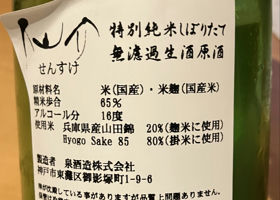 仙介
せんすけ
特別純米しぼりたて
無濾過生酒原酒
原材料名 米(国産)・米麹(国産米)
精米歩合 65%
アルコール分 16度
使用米 兵庫県産山田錦 20%(麹米に使用)
Hyogo Sake 85 80%(掛米に使用)
製造者 泉酒造株式会社
神戸市東灘区御影塚町1-9-6
沈殿している事がありますが品質上問題ありません。